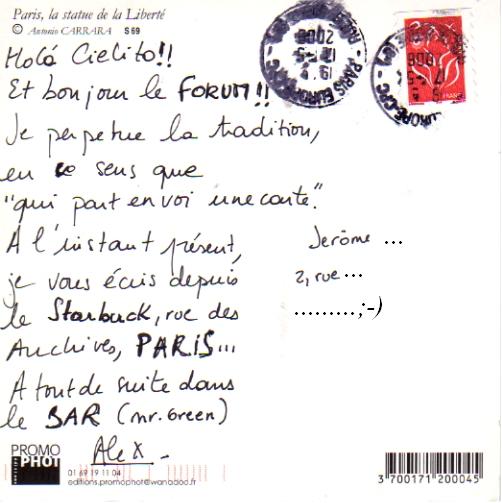 Paris, la statue de la Liberté
© Antonio CARRARA S 69
Holà Cielito!!
Et bonjour le FORUM!!
Je perpetue la tradition,
en ce sens que
"qui part envoi une carte".
A l'instant présent,
je vous écris depuis
le Starbuck, rue des
Archives, PARIS...
A tout de suite dans
le BAR (mr. Green)
Alex
Jerôme ...
2, rue ...
.........;-)
FRANCE
PARIS EUROPE CPC
17-5
2006
PROMO
PHOT
01 69 19 11 04
editions.promophot@wanadoo.fr
3 700171 200045